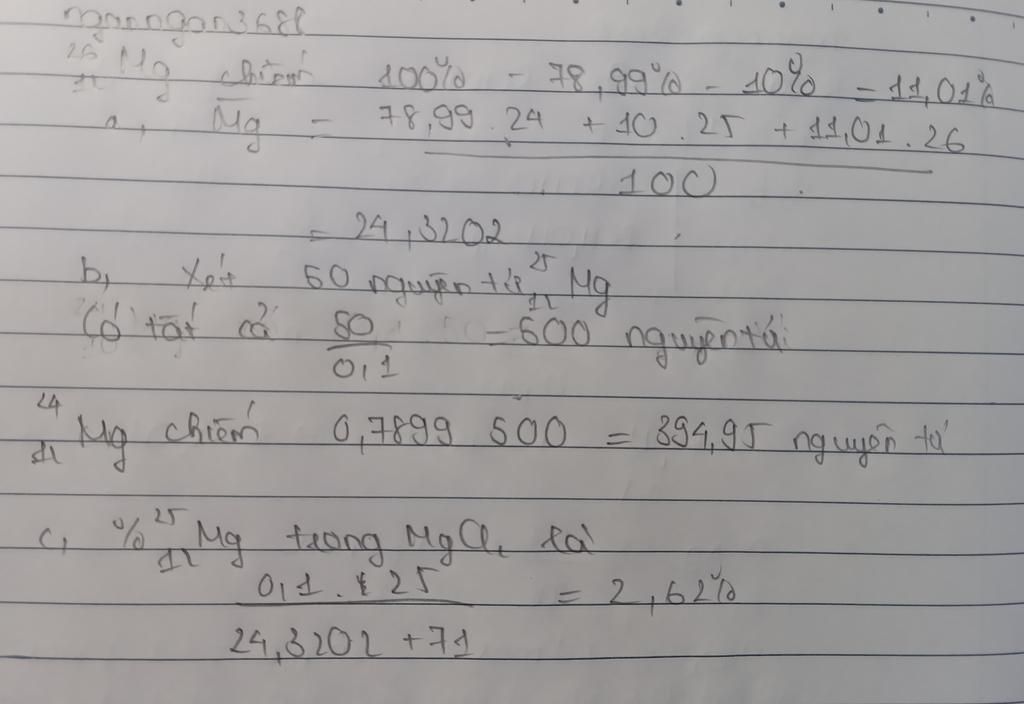 nganngan3688
²⁶₁₂Mg chiếm 100% - 78,99% - 10% = 11,01%
a, M̄g = 78,99.24 + 10.25 + 11,01.26
100
= 24,3202
b, Xét 50 nguyên tử ²⁵₁₂Mg
Có tất cả 50/0,1 = 500 nguyên tử
²⁴₁₂Mg chiếm 0,7899 500 = 394,95 nguyên tử
c, %²⁵₁₂Mg trong MgCl₂ là
0,1 . 25 = 2,62%
24,3202 + 71